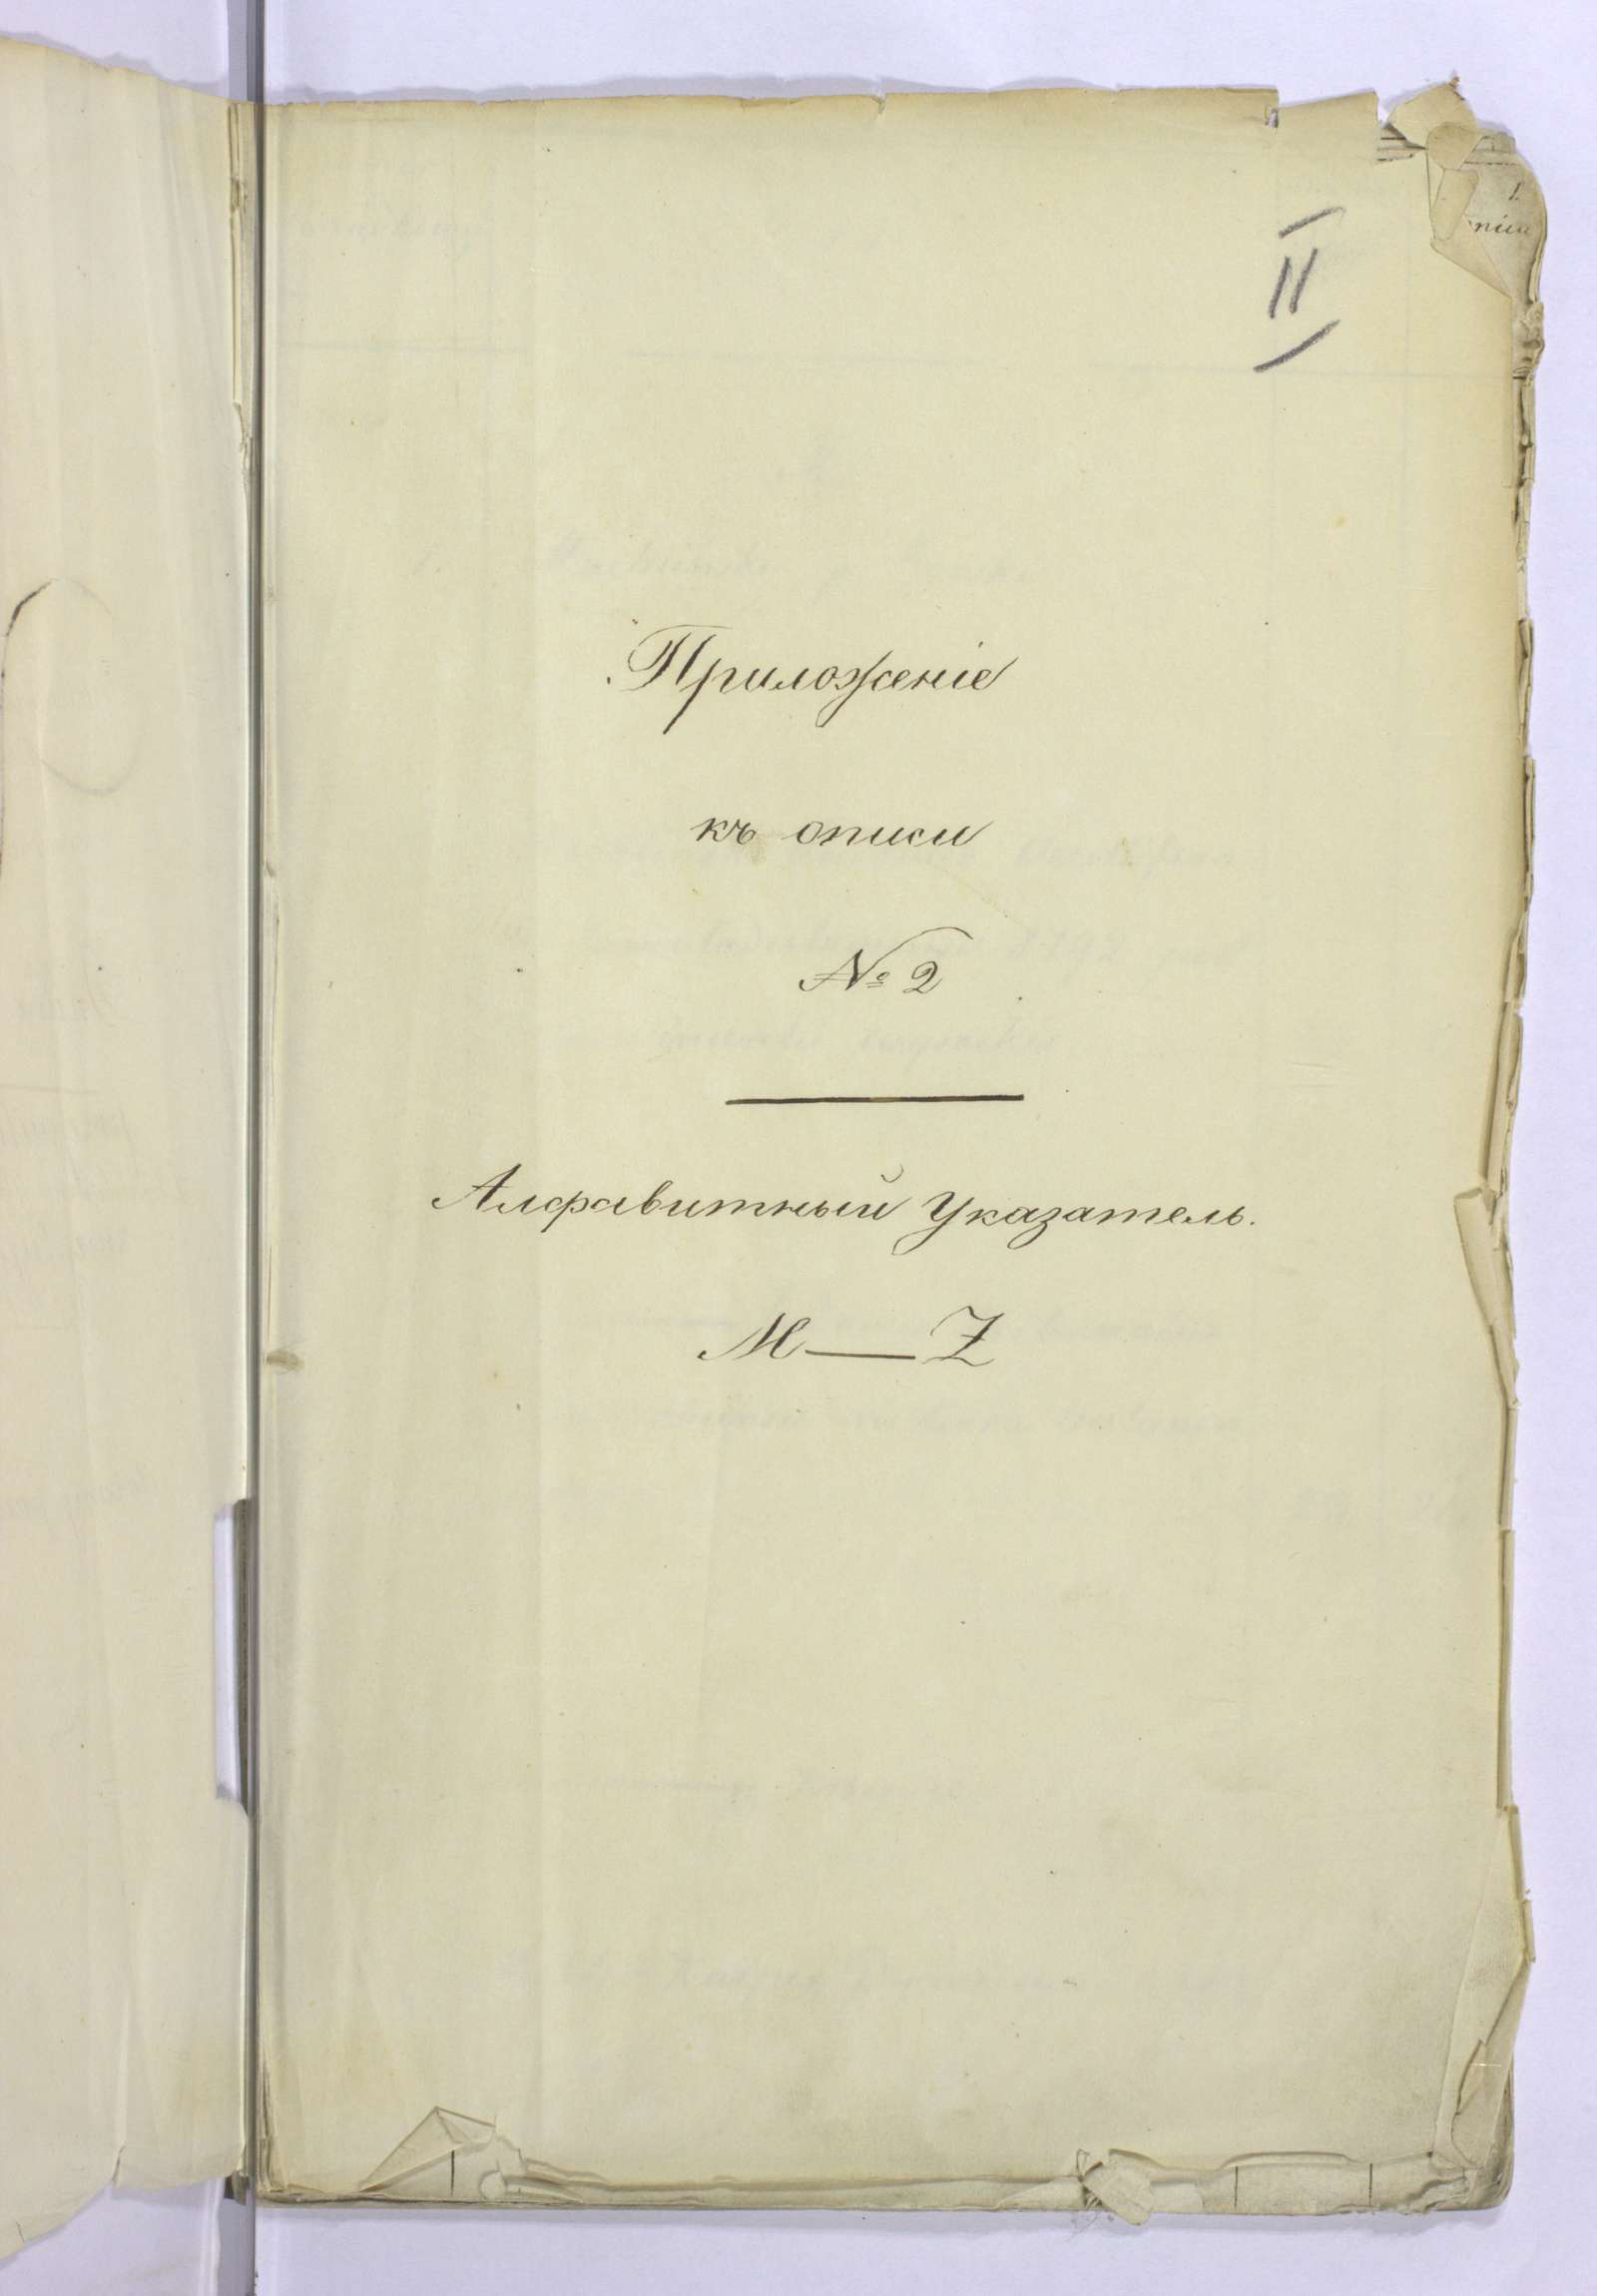 II
Приложеніе
къ описи
№ 2
Алфавитный Указатель.
M — Z